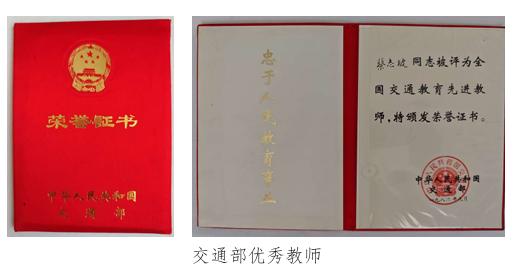 荣誉证书
中华人民共和国
交通部
忠于人民教育事业
蔡志坡同志被评为全
国交通教育先进教
师,特颁发荣誉证书。
中华人民共和国
交通部
交通部优秀教师